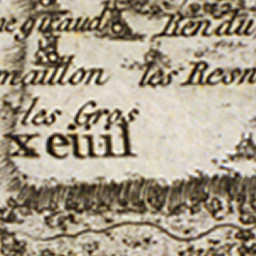 neguiaud Rendu
maillon les Resn
les Gros
xeüil